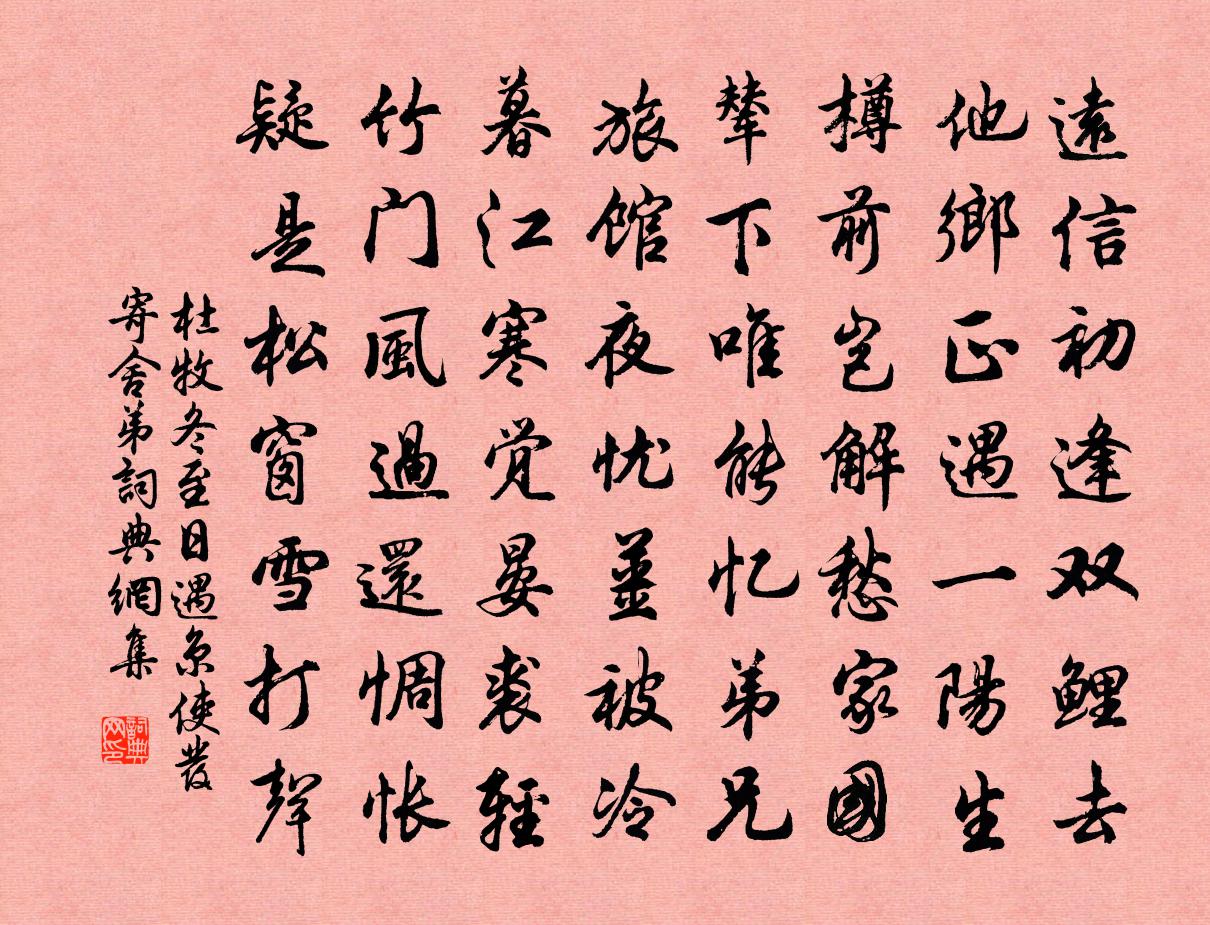 遠信初逢双鯉去
他鄉正遇一陽生
樽前豈解愁家國
輦下唯能忆弟兄
旅館夜忧薑被冷
暮江寒觉晏裘輕
竹门風過還惆怅
疑是松窗雪打聲
杜牧冬至日遇京使發
寄舍弟詞典網集
詞典网印